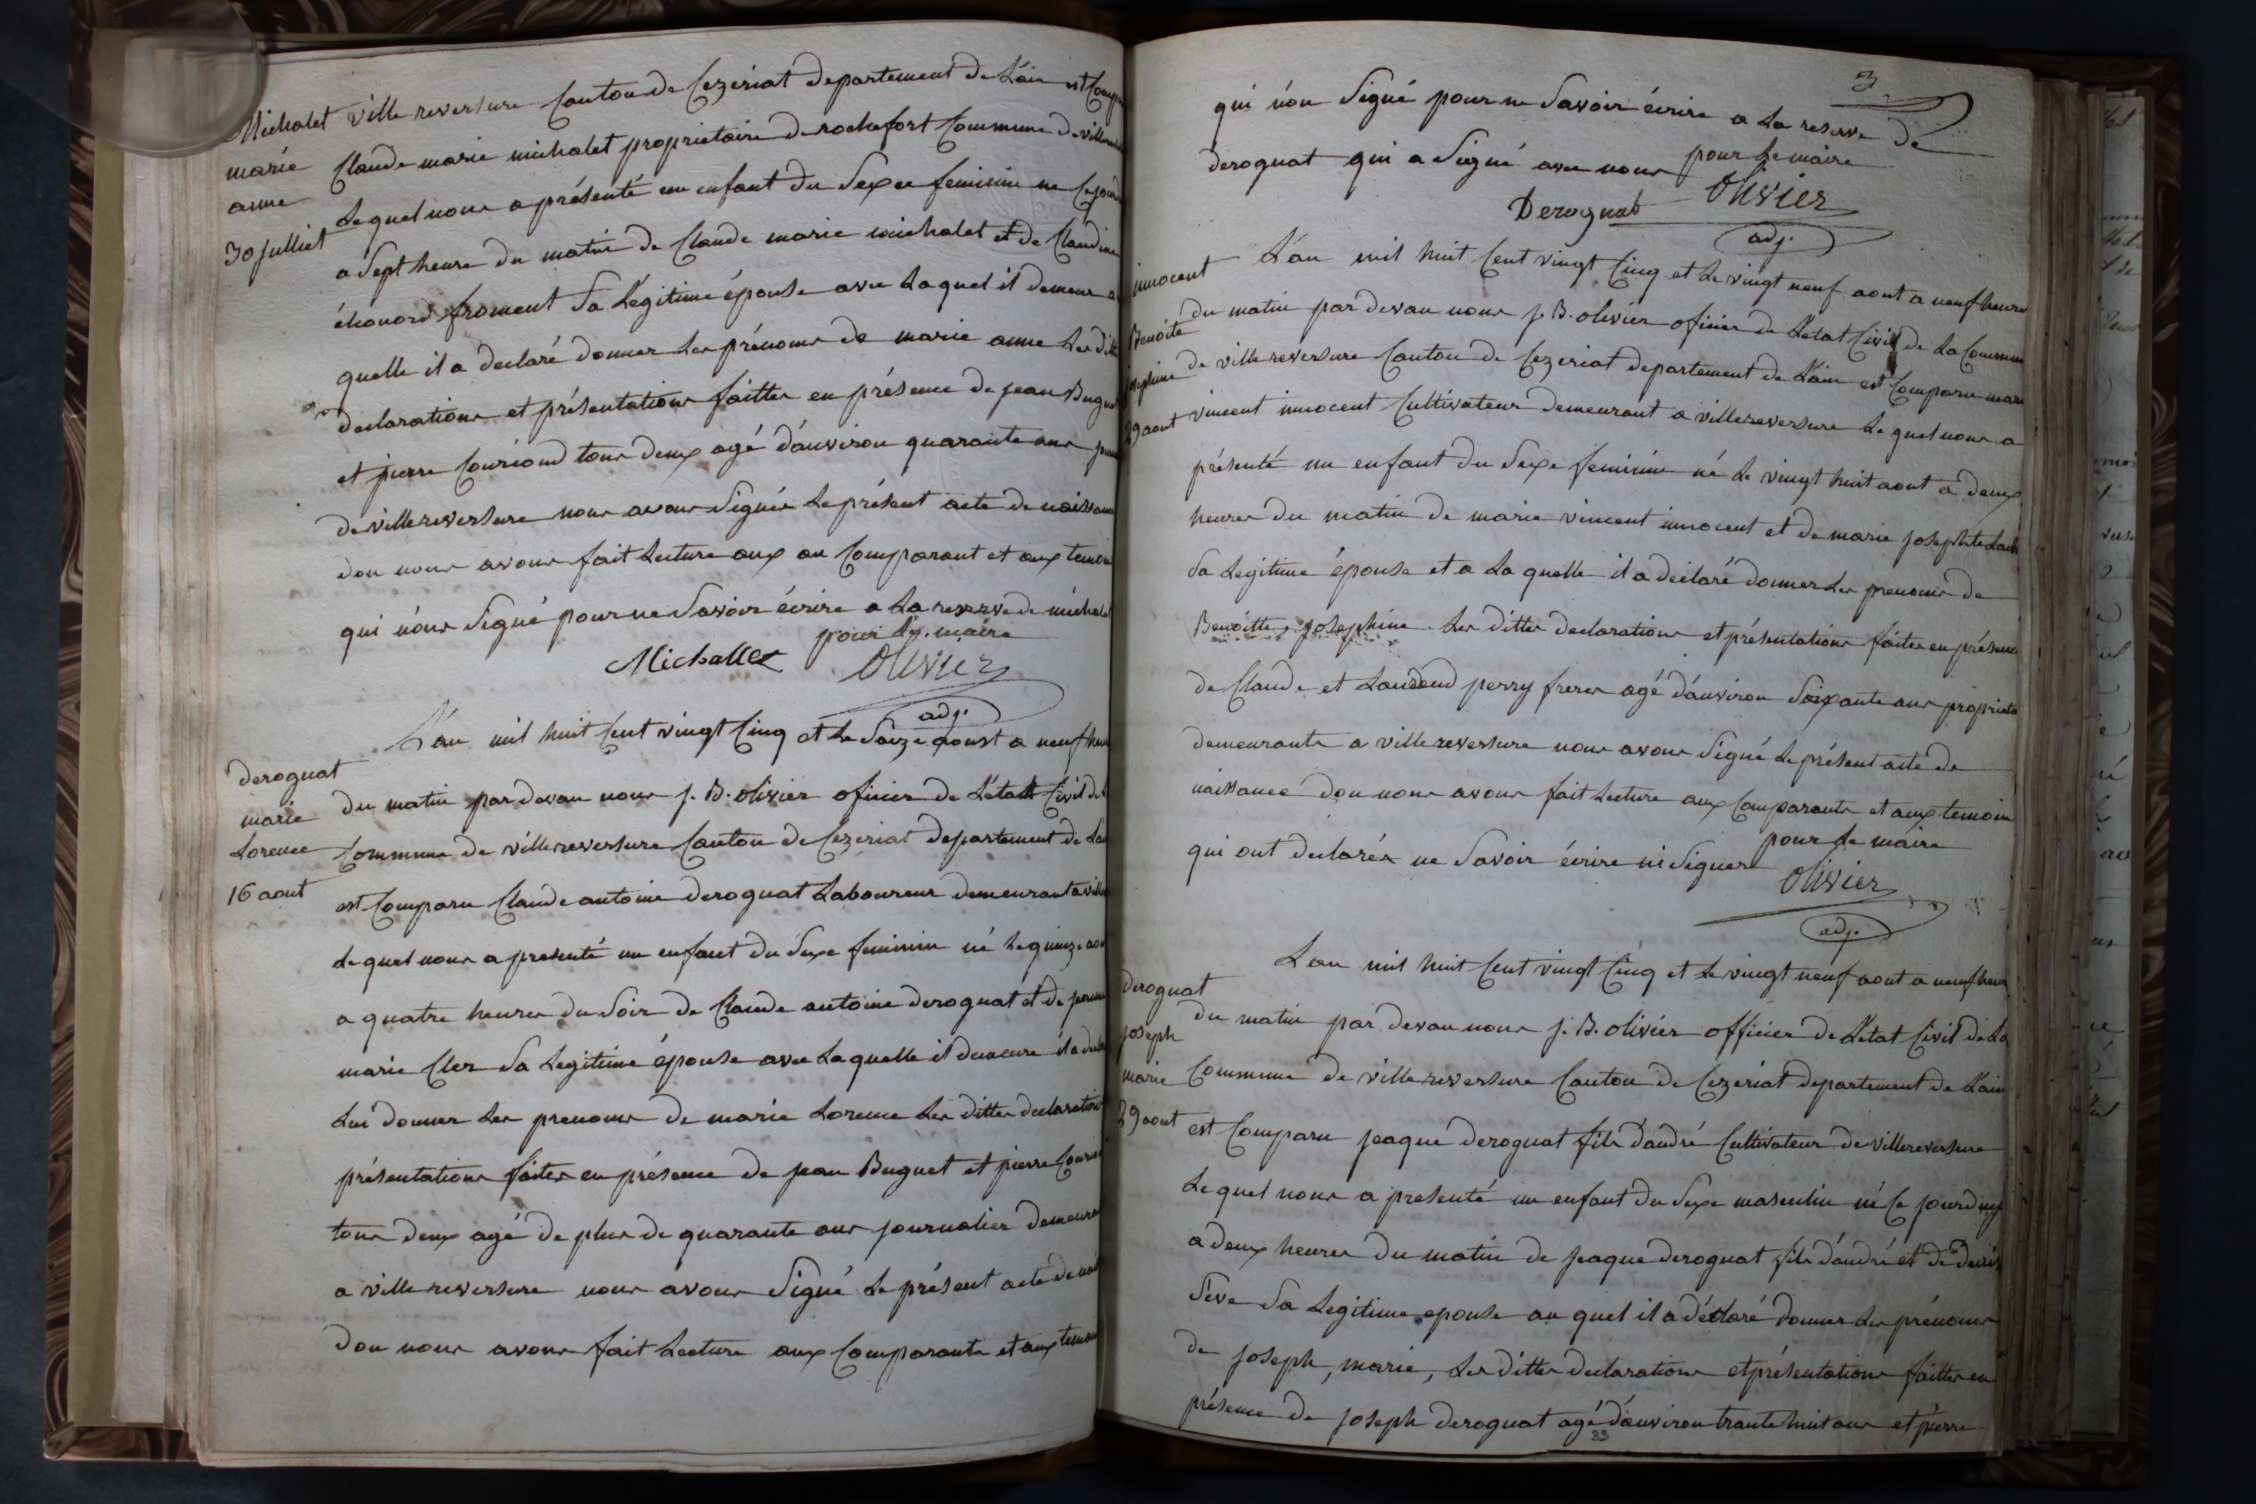 Michalet
marie
anne
30 julliet
ville reversure Canton de Cezeriat departement de L'ain est Compa
Claude marie michalet proprietaire de rochefort Commune de villere
Lequel nous a présenté un enfant du Sexe feminin ne Cejour
a Sept heure du matin de Claude marie michalet et de Claudine
froment Sa Légitime épouse avec Laquel il demeure a
quelle il a declaré donner Les prénoms de marie anne Les ditte
declarations et présentations faittes en présence de jean Buguet
et pierre Couriond tous deux agé d'anviron quarante ans jour
de villereversure nous avons Signés Le présent acte de naissance
don nous avons fait Lecture aux au Comparant et aux temoin
qui n'ons Signé pour ne Savoir écrire a La reserve de michalet
pour Le maire
Michallet Olivier
adj.
deroguat
marie
Lorence
16 aout
L'an mil huit Cent vingt Cinq et Le Saize aoust a neuf heu
du matin par devan nous j. B. olivier oficier de L'etat Civil de L
Commune de villereversure Canton de Cezeriat departement de Lai
est Comparu Claude antoine deroguat Laboureur demeurant a ville
Lequel nous a presenté un enfant du Sexe feminin né Le quinze aou
a quatre heures du Soir de Claude antoine deroguat et de jeanne
marie Cler Sa Legitime épouse avec Laquelle il demeure il a decla
Lui donner Les prenoms de marie Lorence Les dittes declaration
présentations faites en présence de jean Buguet et pierre Couri
tous deux agé de plus de quarante ans journalier demeura
a villereversure nous avons Signé Le présent acte de nai
don nous avons fait Lecture aux Comparants et aux temoin
3
qui n'on Signé pour ne Savoir écrire a La reserve de
deroguat qui a Signé avec nous pour Le maire
Deroguat Olivier
adj.
innocent
Benoite
josephine
29 aout
L'an mil huit Cent vingt Cinq et Le vingt neuf aout a neuf heure
du matin par devan nous j. B. olivier oficier de L'etat Civil de La Commun
de villereversure Canton de Cezeriat departement de L'ain est Comparu mari
vincent innocent Cultivateur demeurant a villereversure Lequel nous a
présenté un enfant du Sexe feminin né Le vingt huit aout a deux
heures du matin de marie vincent innocent et de marie josephte
Sa Legitime épouse et a La quelle il a déclaré donner Les prenoms de
Benoitte, josephine Les dittes declarations et présentations faites en présence
de Claude et perry freres agé d'anviron Soixante ans proprieta
demeurants a villereversure nous avons Signé Le présent acte de
naissance don nous avons fait Lecture aux Comparants et aux temoin
qui ont declarés ne Savoir écrire ni Signer pour Le maire
Olivier
adj.
deroguat
joseph
marie
29 aout
L'an mil huit Cent vingt Cinq et Le vingt neuf aout a neuf heur
du matin par devan nous j. B. olivier officier de L'etat Civil de La
Commune de villereversure Canton de Cezeriat departement de L'ain
est Comparu jeaque deroguat fils d'andré Cultivateur de villereversure
Lequel nous a presenté un enfant du Sexe masculin né Ce jourduy
a deux heures du matin de jeaque deroguat fils d'andré et de
Sève Sa Legitime epouse au quel il a déclaré donner Les prénoms
de joseph, marie, Les dittes declarations et présentations faittes en
présence de joseph deroguat agé d'anviron trante huit ans et pierre
33